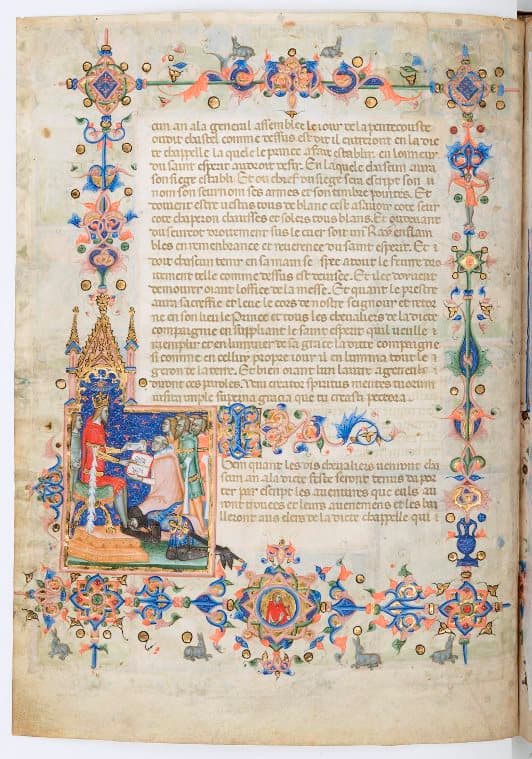 cun an ala general assemblee le iour de la penthecouste
ou dit chastel comme dessus est dit il entreront en la dic
te chappelle la quele le prince a fait establir en lonneur
du saint esperit au droit desir. En la quele chascun aura
son siege establi. Et ou chief du siege sera escript son
nom son seurnom ses armes et son timbre pointes. Et
seront vestus tous de blanc cest assavoir cote seur
cote chaperon chausses et solers tous blans. Et
du seurcot droitement sus le cuer soit un Ray enflam
bles en remembrance et reverence du saint esperit. Et
doit chascun tenir en sa main se spee atout le
tement telle comme dessus est devisee. Et ilec doivent
demourer oiant loffice de la messe. Et quant le prestre
aura sacrefie et leve le cors de nostre seignour et retor
ne en son lieu le Prince et tous les chevaliers de la dicte
compaignie en suppliant le saint esperit quil vueille
exemplir et enluminer de sa grace la dicte compaignie
si comme en celluy propre iour il enlumina tout le
geron de la terre. Et bien oiant lun lautre agenoils
diront ces paroles. Veni creator spiritus mentes tuorum
visita imple superna gracia que tu creasti pectora.
Item quant les dis chevaliers venront chas
cun an ala dicte feste seront tenus da por
ter par escript les aventures que euls au
ront trouees et leurs avenemens et les bail
leront aus clers de la dicte chappelle qui